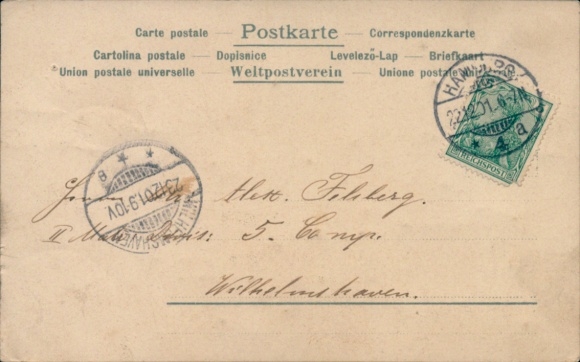 Carte postale — Postkarte — Correspondenzkarte
Cartolina postale — Dopisnice Levelező-Lap — Briefkaart
Union postale universelle — Weltpostverein — Unione postale
HAMBURG
22.12.01. 6-7 N.
* 4 a
REICHSPOST
WILHELMSHAVEN
23.12.01.9-10V
* * a
Herrn Felsberg.
II 5. Comp.
Wilhelmshaven.